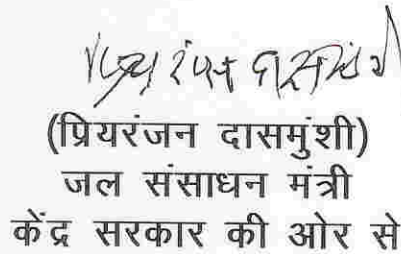 प्रियरंजन दासमुंशी
(प्रियरंजन दासमुंशी)
जल संसाधन मंत्री
केंद्र सरकार की ओर से